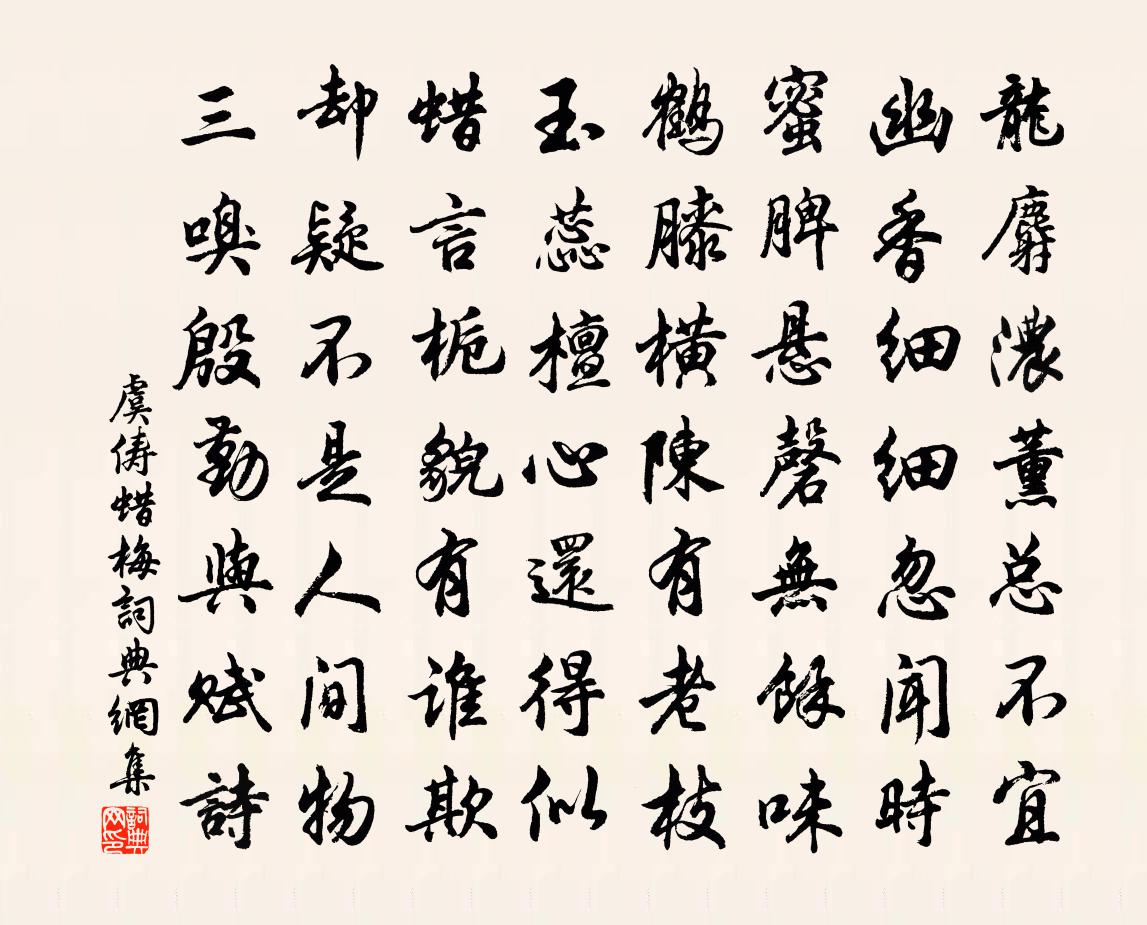 龍麝濃薰总不宜
幽香細細忽聞時
蜜脾悬磬無餘味
鶴膝橫陳有老枝
玉蕊檀心還得似
蜡言栀貌有谁欺
却疑不是人间物
三嗅殷勤與赋詩
虞俦蜡梅詞典網集
詞典網印